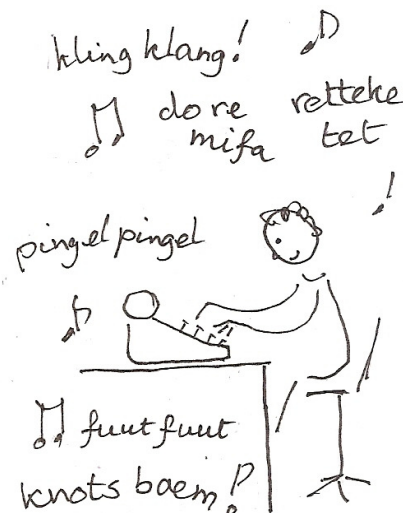 kling klang!
do re retteke
mifa tet
pingel pingel
fuut fuut
knots baem!